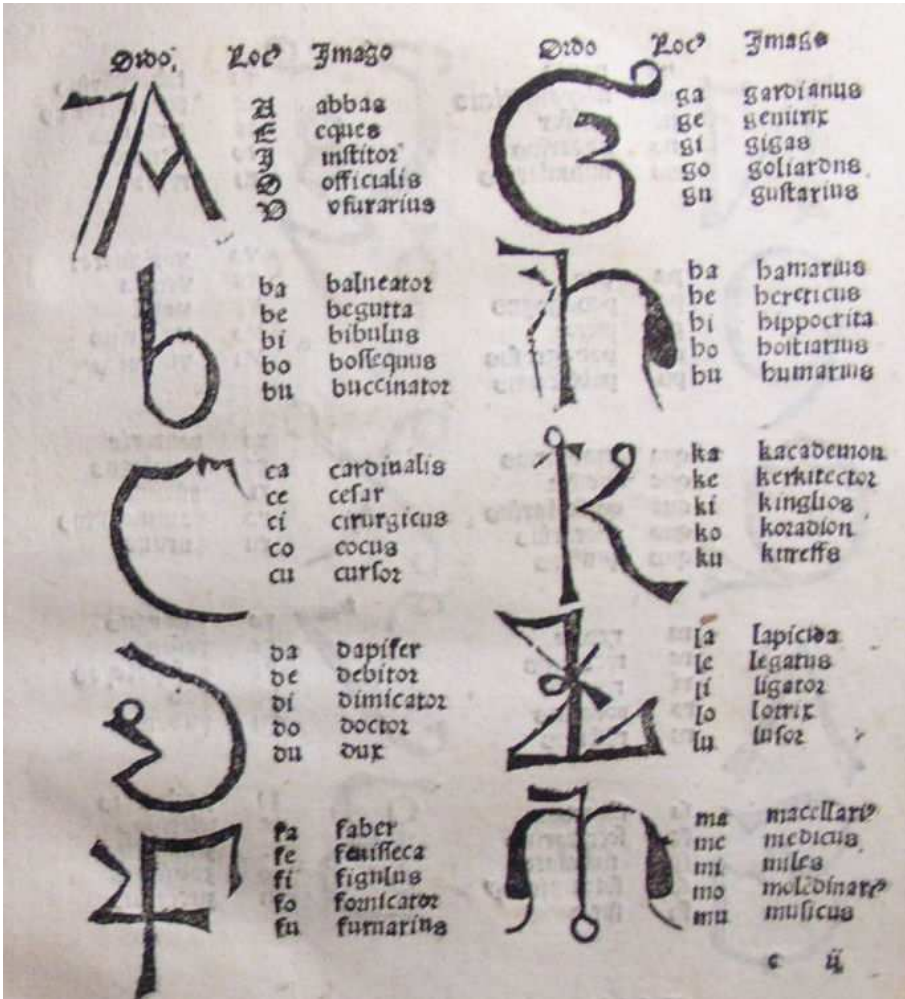 Ordo. Locꝰ Imago
A
A abbas
E eques
I institor
O officialis
V vsurarius
b
ba balneator
be begutta
bi bibulus
bo bossequus
bu buccinator
C
ca cardinalis
ce cesar
ci cirurgicus
co cocus
cu cursor
D
da dapifer
de debitor
di dimicator
do doctor
du dux
F
fa faber
fe fenisseca
fi figulus
fo fornicator
fu furnarius
Ordo Locꝰ Imago
G
ga gardianus
ge genitrix
gi gigas
go goliardus
gu gustarius
h
ha hamarius
he hereticus
hi hippocrita
ho hostiarius
hu humarius
k
ka kacademon
ke kerkitector
ki kinglios
ko koradion
ku kureffs
L
la lapicida
le legatus
li ligator
lo lotrix
lu lusor
m
ma macellariꝰ
me medicus
mi miles
mo molēdinariꝰ
mu musicus
c ij